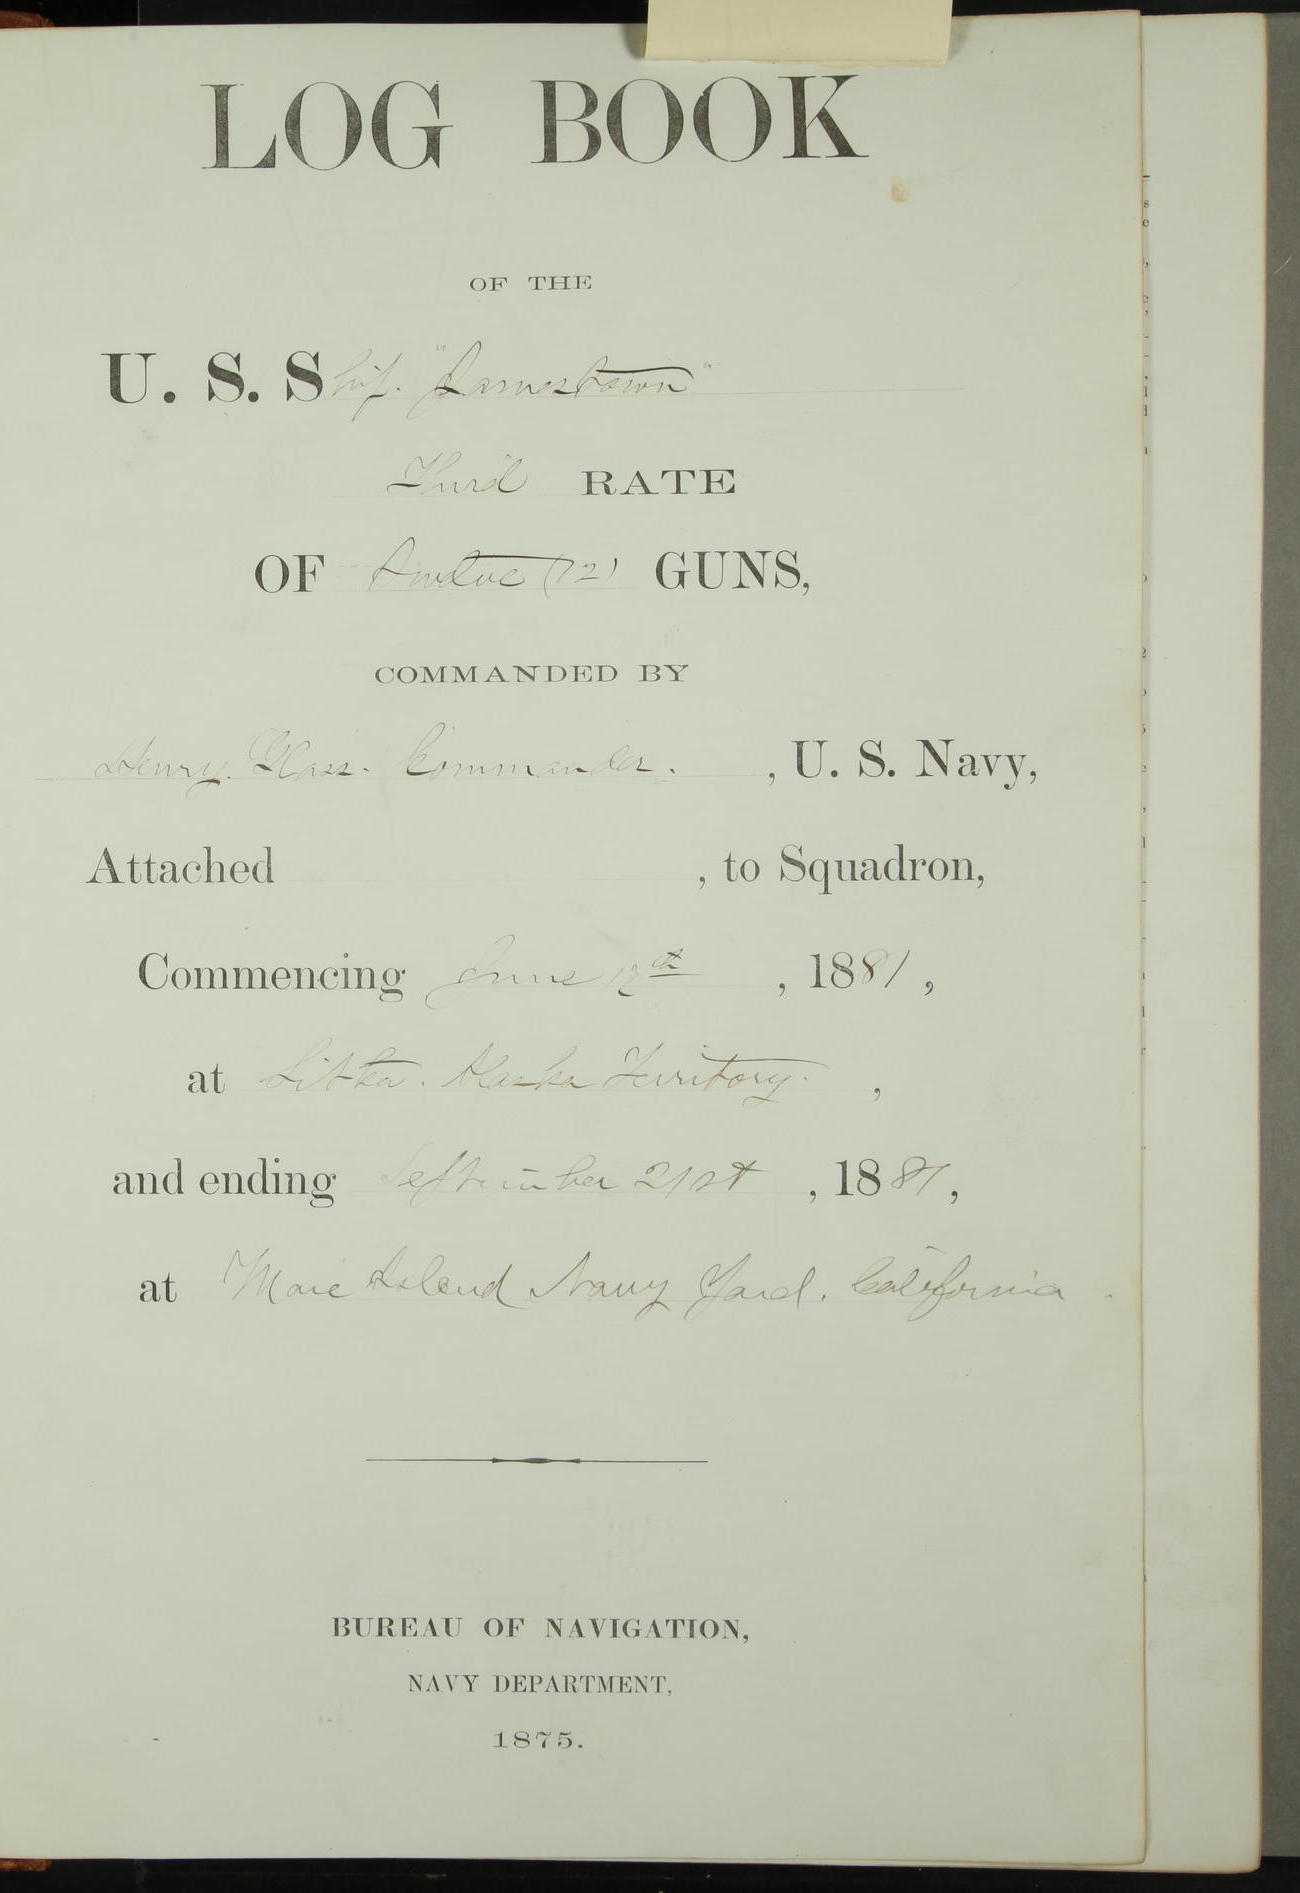 LOG BOOK
OF THE
U. S. Ship. "Jamestown"
Third RATE
OF Twelve (12) GUNS,
COMMANDED BY
Henry Glass. Commander. , U. S. Navy,
Attached , to Squadron,
Commencing June , 1881,
at Sitka. Alaska Territory. ,
and ending September 21st , 1881,
at Mare Island Navy Yard. California.
BUREAU OF NAVIGATION,
NAVY DEPARTMENT,
1875.